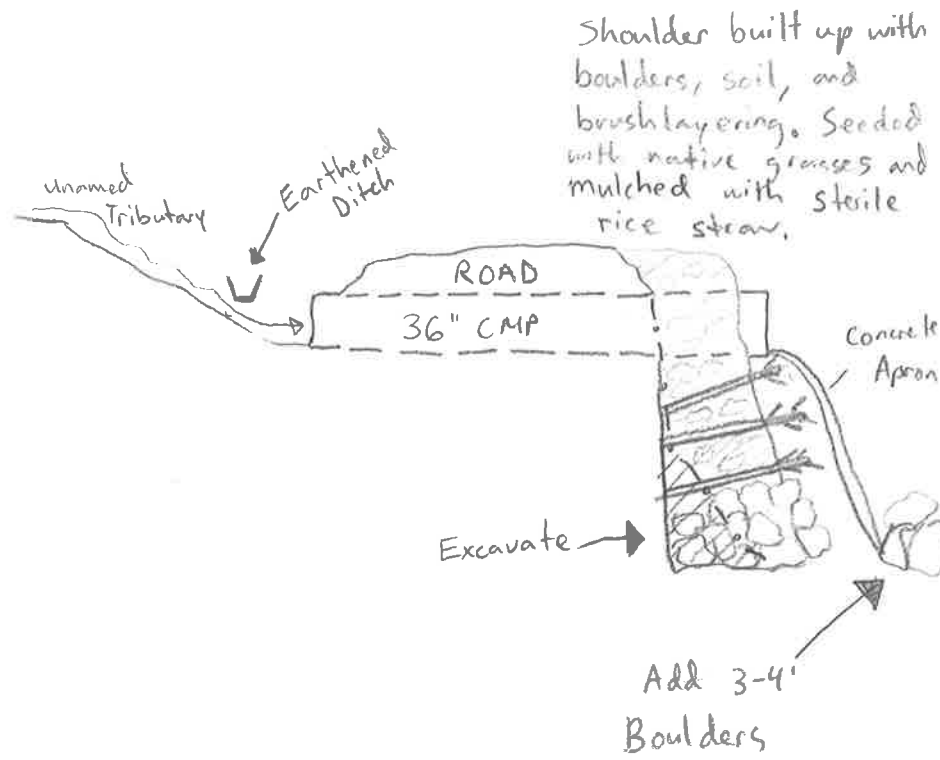 Shoulder built up with
boulders, soil, and
brushlayering. Seeded
with native grasses and
mulched with sterile
rice straw.
Unamed
Tributary
Earthened
Ditch
ROAD
36" CMP
Concrete
Apron
Excavate
Add 3-4'
Boulders